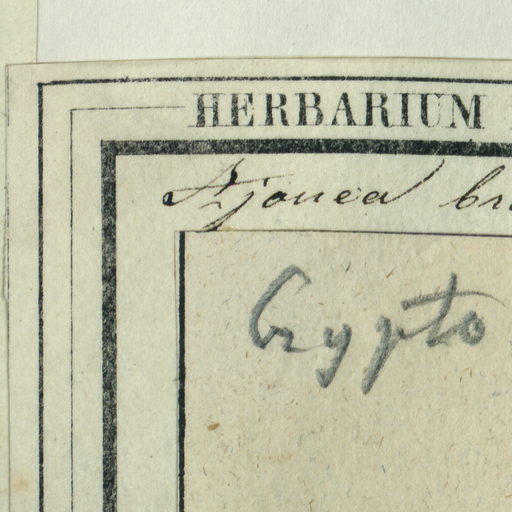 HERBARIUM
Azjouea br
Crypto